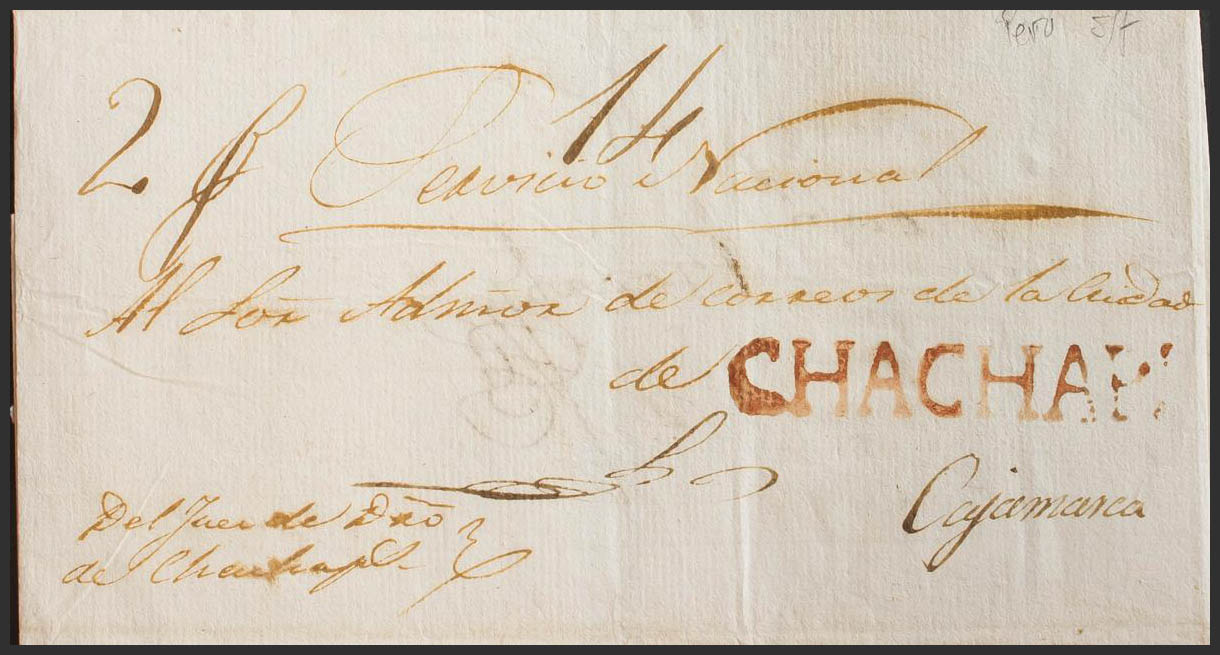 Peru 5/7
2 14
Servicio Nacional
Al Sor. Admor. de correos de la Ciudad
de CHACHAP
Cajamarca
Del Juez de Dro
de Chachaps